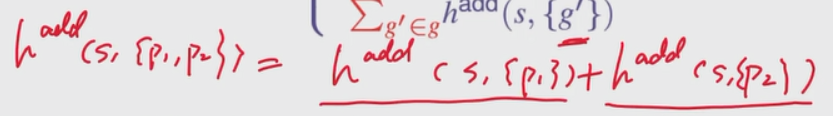 ∑g'∈g h^add(s, {g'})
h^add(s, {p₁, p₂}) = h^add(s, {p₁}) + h^add(s, {p₂})